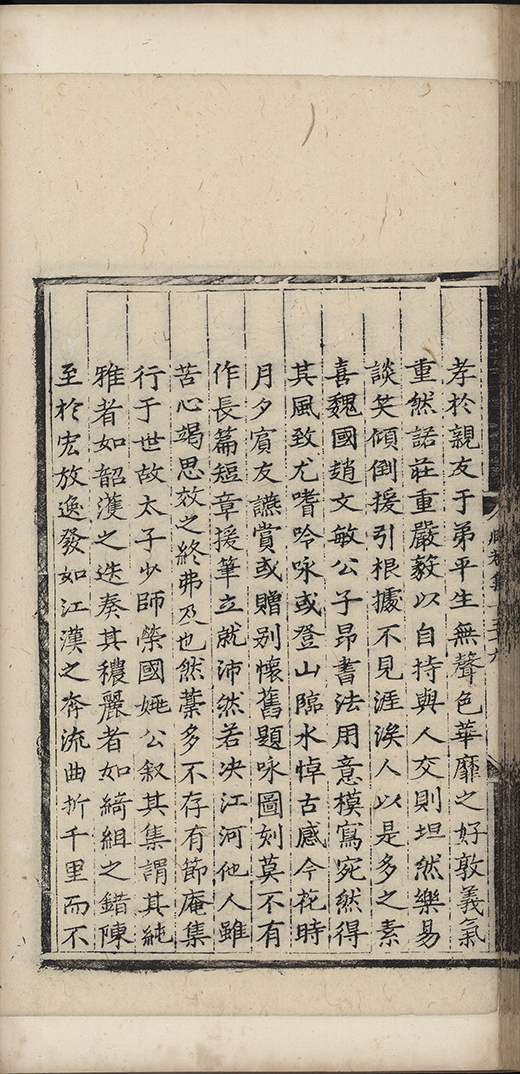 孝於親友于弟平生無聲色華靡之好敦義氣
重然諾莊重嚴毅以自持與人交則坦然樂易
談笑傾倒援引根據不見涯涘人以是多之素
喜魏國趙文敏公子昂書法用意模寫宛然得
其風致尤嗜吟咏或登山臨水悼古感今花時
月夕賓友讌賞或贈别懷舊題咏圖刻莫不有
作長篇短章援筆立就沛然若决江河他人雖
苦心竭思效之終弗及也然藁多不存有節庵集
行于世故太子少師榮國姚公叙其集謂其純
雅者如韶濩之迭奏其穠麗者如綺組之錯陳
至於宏放逸發如江漢之奔流曲折千里而不